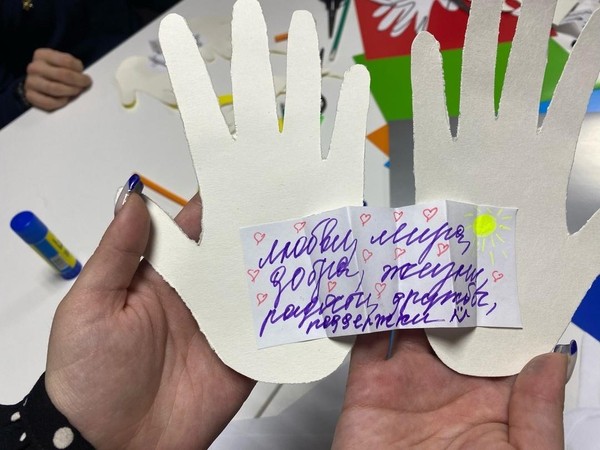 любви, мира,
добра, жизни,
радости, дружбы,
поддержки !!